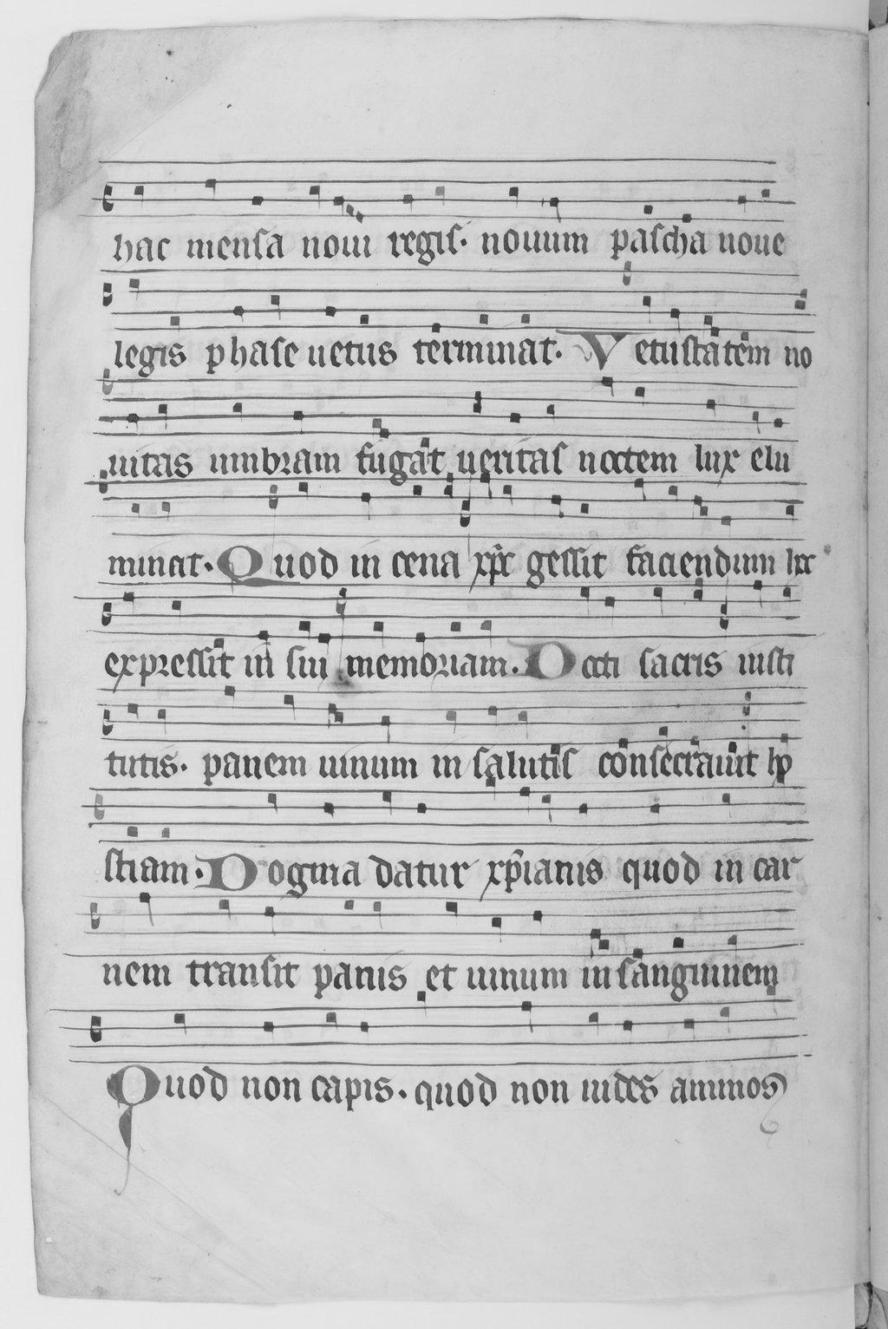 hac mensa noui regis· nouum pascha noue
legis phase uetus terminat· Vetustatem no
uitas umbram fugat ueritas noctem lux elu
minat· Quod in cena xp̄c gessit faciendum hc
expressit in sui memoriam· Docti sacris insti
tutis· panem uinum in salutis consecrauit hō
stiam· Dogma datur xp̄ianis quod in car
nem transit panis et uinum in sanguinem
Quod non capis· quod non uides animosꝰ